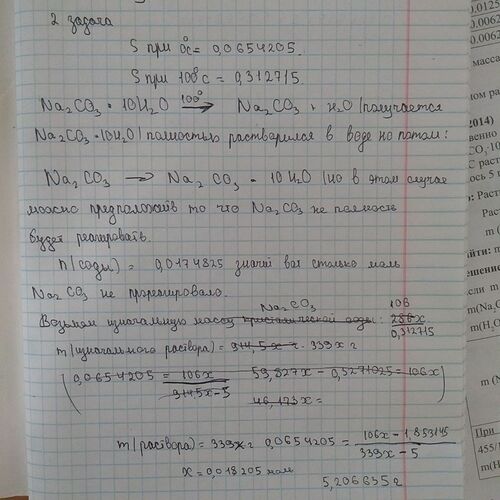 2 задача
S при 0°С = 0,0654205.
S при 100°С = 0,312715.
Na2CO3 · 10H2O 100° → Na2CO3 + H2O (получается
Na2CO3 · 10H2O) полностью растворился в воде но потом:
Na2CO3 → Na2CO3 · 10H2O (но в этом случае
можно предположив то что Na2CO3 не полность
будет реагировать.
n(соды) = 0,0174825 значит вот столько моль
Na2CO3 не прореагировало.
Na2CO3 106
Возьмем изначальную массу кристаллической соды: 286x
0,312715
m(изначального раствора) = 914,5x г. 339x г
0,0654205 = 106x 59,827x - 0,5271025 = 106x
914,5x-5 46,173x =
m(раствора) = 339x г 0,0654205 = 106x - 1,853145
339x - 5
x = 0,018205 моль
5,206635 г
0.0125
0.0062
0.0062
масса
2014)
венно
CO3·10
С раст
ось 5
Раст
Рас
m (
йти:
ешени
сли m
m(Na2C
m(H2O
m (N
При
455/1
m(H